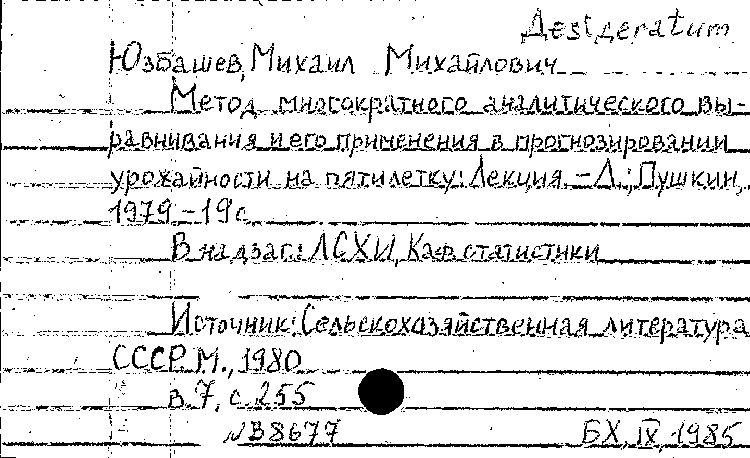 Desideratum
Юзбашев, Михаил Михайлович
Метод многократного аналитического вы-
равнивания и его применения в прогнозировании
урожайности на пятилетку: Лекция. - Л.; Пушкин,
1979. - 19 с.
В надзаг.: ЛСХИ, Каф статистики
Источник: Сельскохозяйственная литература
СССР. М., 1980
в. 7, с. 255
№ В8677 БХ, IX, 1985